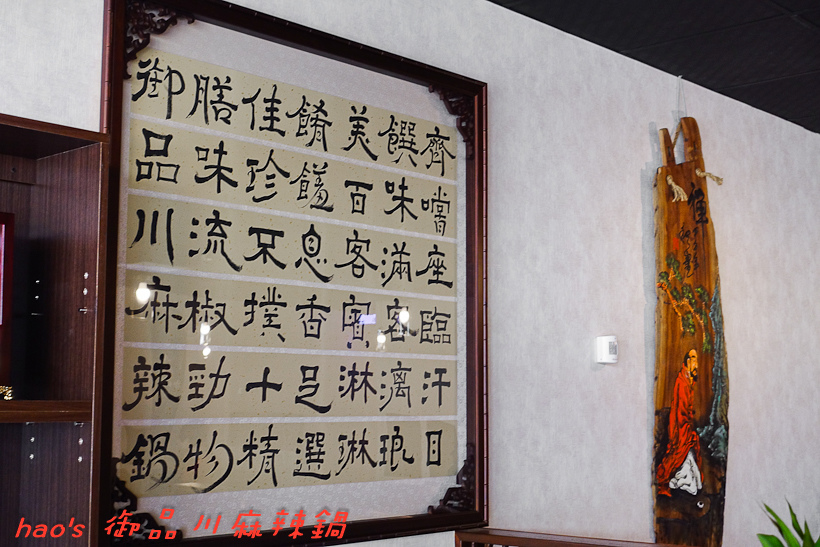 御膳佳餚美饌齊
品味珍饈百味嚐
川流不息客滿座
麻椒撲香賓客臨
辣勁十足淋漓汗
鍋物精選琳琅目
hao's 御品川麻辣鍋